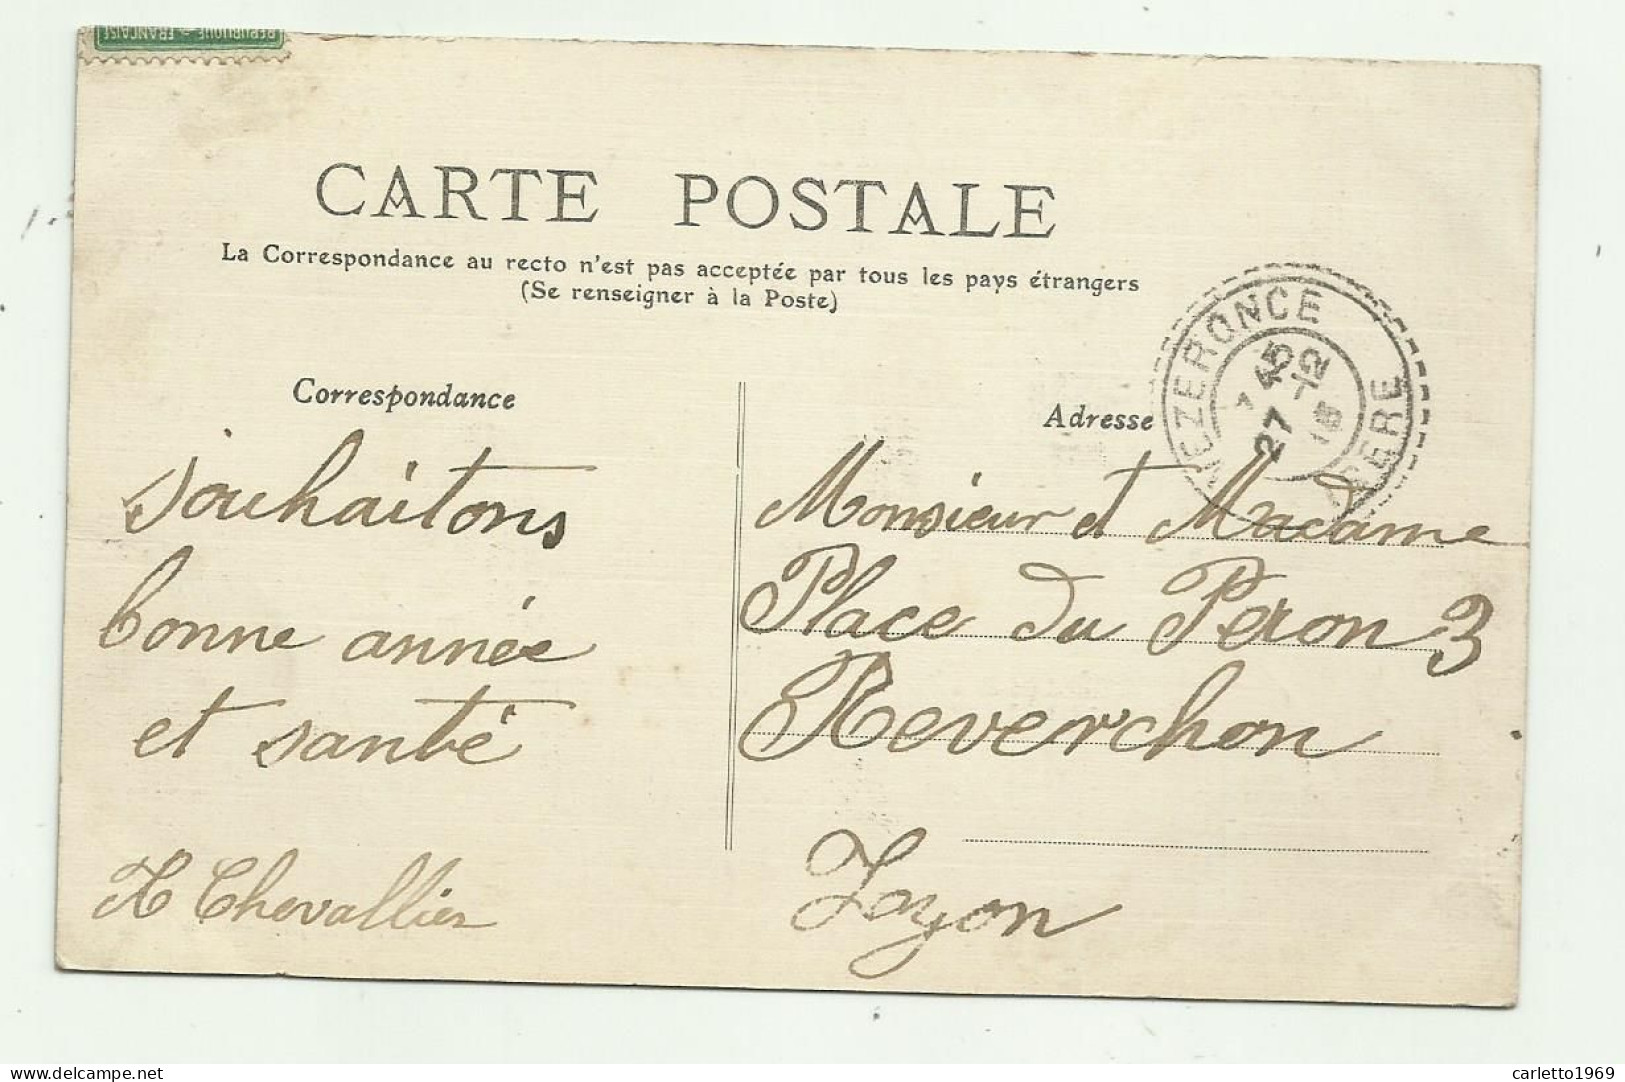 REPUBLIQUE FRANÇAISE
CARTE POSTALE
La Correspondance au recto n'est pas acceptée par tous les pays étrangers
(Se renseigner à la Poste)
VEZERONCE
15
27 12
ISERE
Correspondance
souhaitons
bonne année
et santé
Chevallier
Adresse
Monsieur et Madame
Place du Peron 3
Reverchon
Layon
delcampe.net
carletto1969